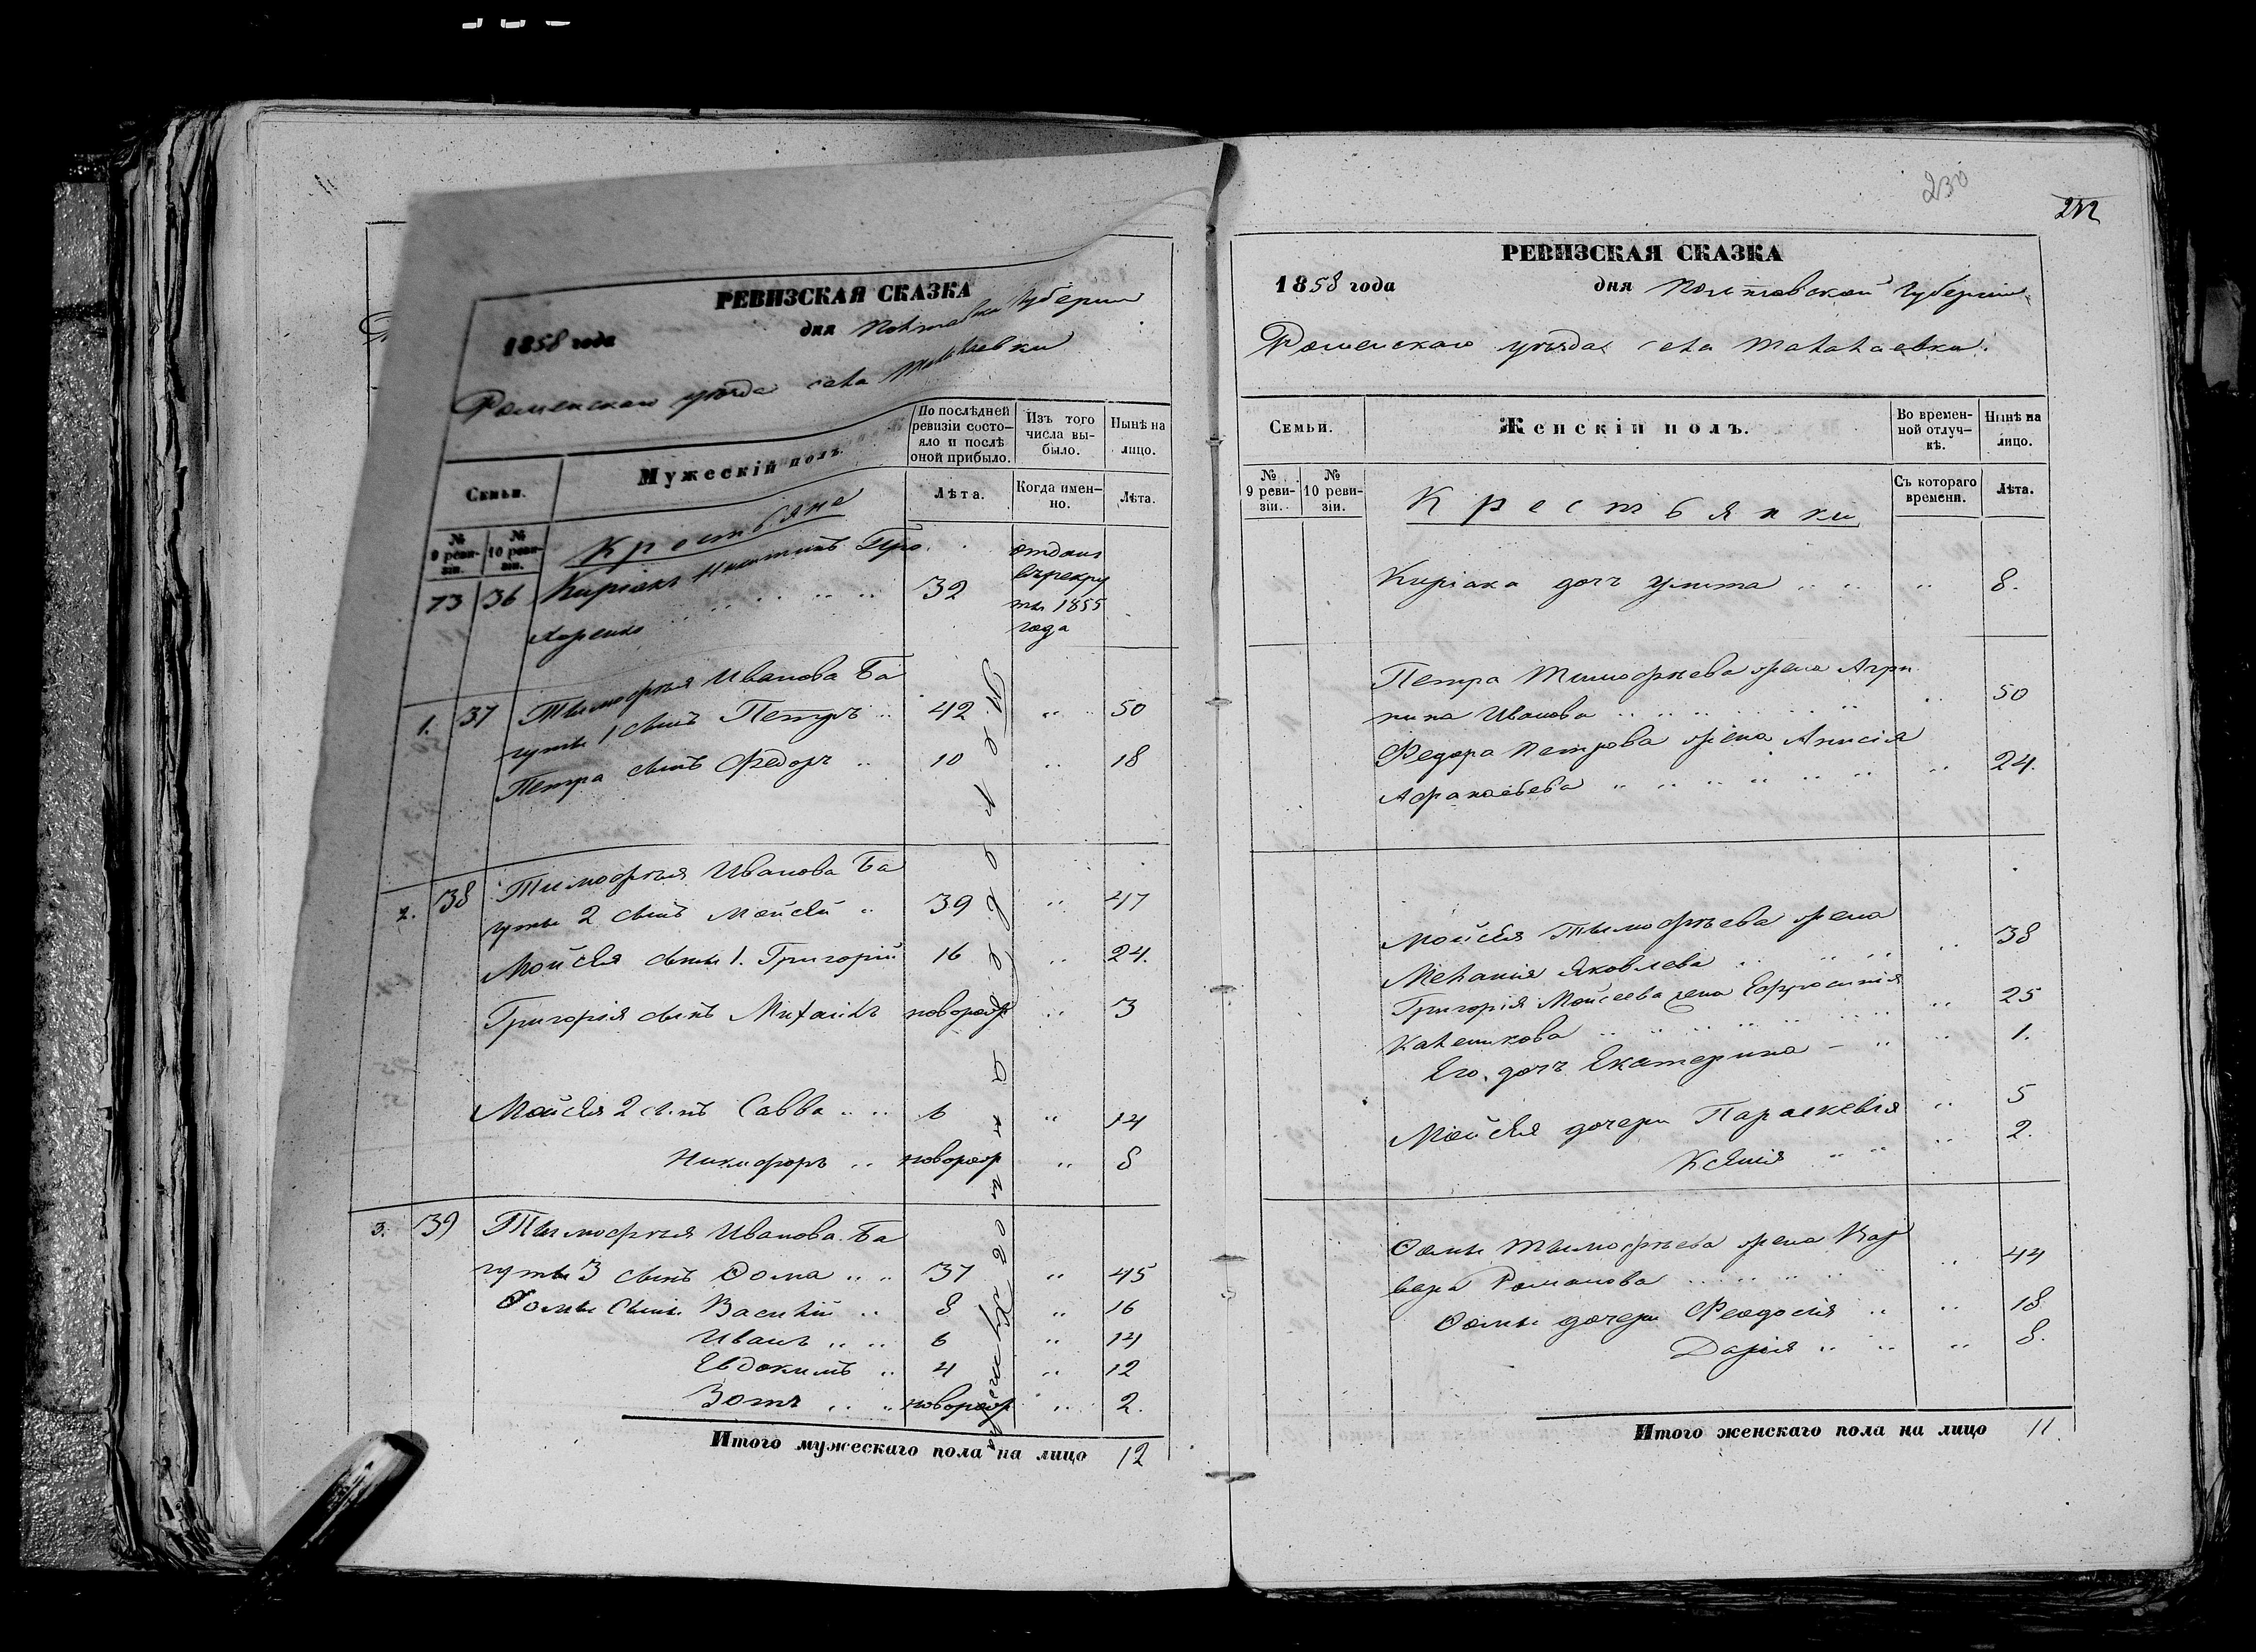 РЕВИЗСКАЯ СКАЗКА
1858 года дня Полтавской Губернии
Роменскаго уѣзда села Талалаевки
Семьи.
Мужескій полъ.
По послѣдней ревизіи состо-
яло и послѣ
оной прибыло.
Изъ того
числа вы-
было.
Нынѣ на
лицо.
№
9 реви-
зіи.
№
10 реви-
зіи.
Крестьяне
Лѣта.
Когда имен-
но.
Лѣта.
73 36 Киріакъ Никитинъ 32
отданъ
въ рекру
ты 1855
года
1. 37 Тимофѣя Иванова Ба
гуты 1 сынъ Петръ .. 42 .. 50
Петра сынъ Федоръ .. 10 .. 18
2. 38 Тимофѣя Иванова Ба
гуты 2 сынъ Мойсей .. 39 .. 47
Мойсея сыны 1. Григорій 16 .. 24.
Григорія сынъ Михаилъ новорожд .. 3
Мойсея 2 сынъ Савва .. .. 6 .. 14
Никифоръ .. новорожд .. 8
3. 39 Тимофѣя Иванова Ба
гуты 3 сынъ Фома .. .. 37 .. 45
Фомы сыны Василій .. 8 .. 16
Иванъ .. .. 6 .. 14
Евдокимъ .. 4 .. 12
Зотъ .. .. новорожд .. 2.
Итого мужескаго пола на лицо 12
230
РЕВИЗСКАЯ СКАЗКА
1858 года дня Полтавской Губерніи
Роменскаго уѣзда села Талалаевки.
Семьи.
Женскій полъ.
Во времен-
ной отлуч-
кѣ.
Нынѣ на
лицо.
№
9 реви-
зіи.
№
10 реви-
зіи.
Крестьянки
Съ котораго
времени.
Лѣта.
Киріака дочь Улита .. .. .. 8.
Петра Тимофѣева жена Агри
пина Иванова .. .. 50
Федора Петрова жена Анисія
Афанасьева .. .. 24.
Мойсея Тимофѣева жена
Меланія Яковлева .. .. 38
Григорія Мойсеева жена Ефросинія
Каленикова .. .. 25
Его дочь Екатерина .. .. 1.
Мойсея дочери Параскевія .. 5
Ксенія .. .. 2.
Фомы Тимофѣева жена Вар
вара Романова .. .. 44
Фомы дочери Феодосія .. .. 18
Дарія .. .. .. 8.
Итого женскаго пола на лицо 11.